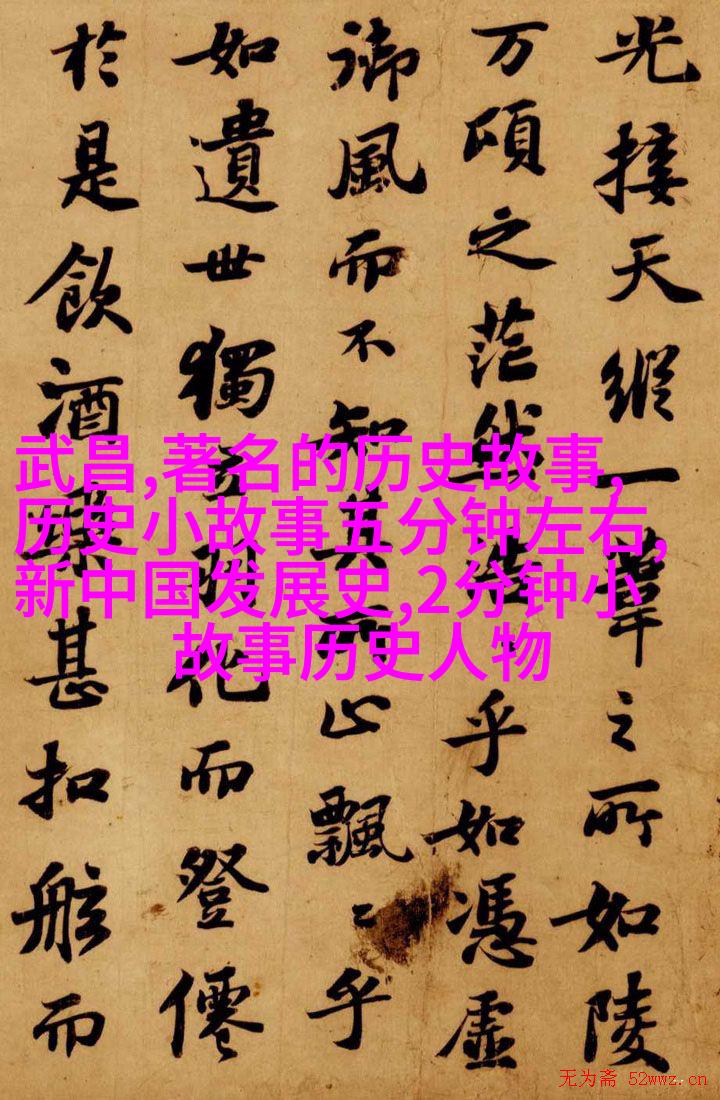 光接天縱一葦之所如陵
万頃之茫然浩〻乎如憑虛
御風而不知其所止飄〻乎
如遺世獨立羽化而登僊
於是飲酒樂甚扣舷而
武昌,著名的历史故事,
历史小故事五分钟左右,
新中国发展史,2分钟小
故事历史人物
无为斋 52wwz.cn